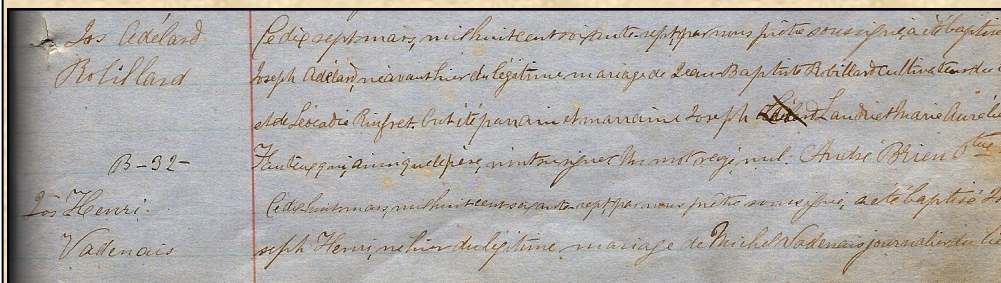 Jos Adélard Ce dix sept mars, mil huit cent soixante-sept, par nous prêtre soussigné, a été baptisé
Robillard Joseph Adélard, né avant hier du légitime mariage de Jean Baptiste Robillard cultivateur du
et de Léocadie Rinfret. Ont été parrain et marraine Joseph Landrie Marie Aurélie
B-32- qui, ainsi que le père, n'ont su signer. Un mot rayé nul. André Brien Ptre
Jos Henri. Ce dix huit mars, mil huit cent soixante-sept, par nous prêtre soussigné, a été baptisé
Vadenais seph Henri, né hier du légitime mariage de Michel Vadenais journalier du